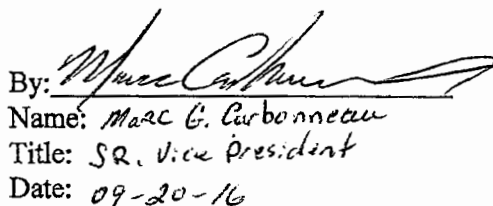 By: Marc Carbonneau
Name: Marc G. Carbonneau
Title: SR. Vice President
Date: 09-20-16